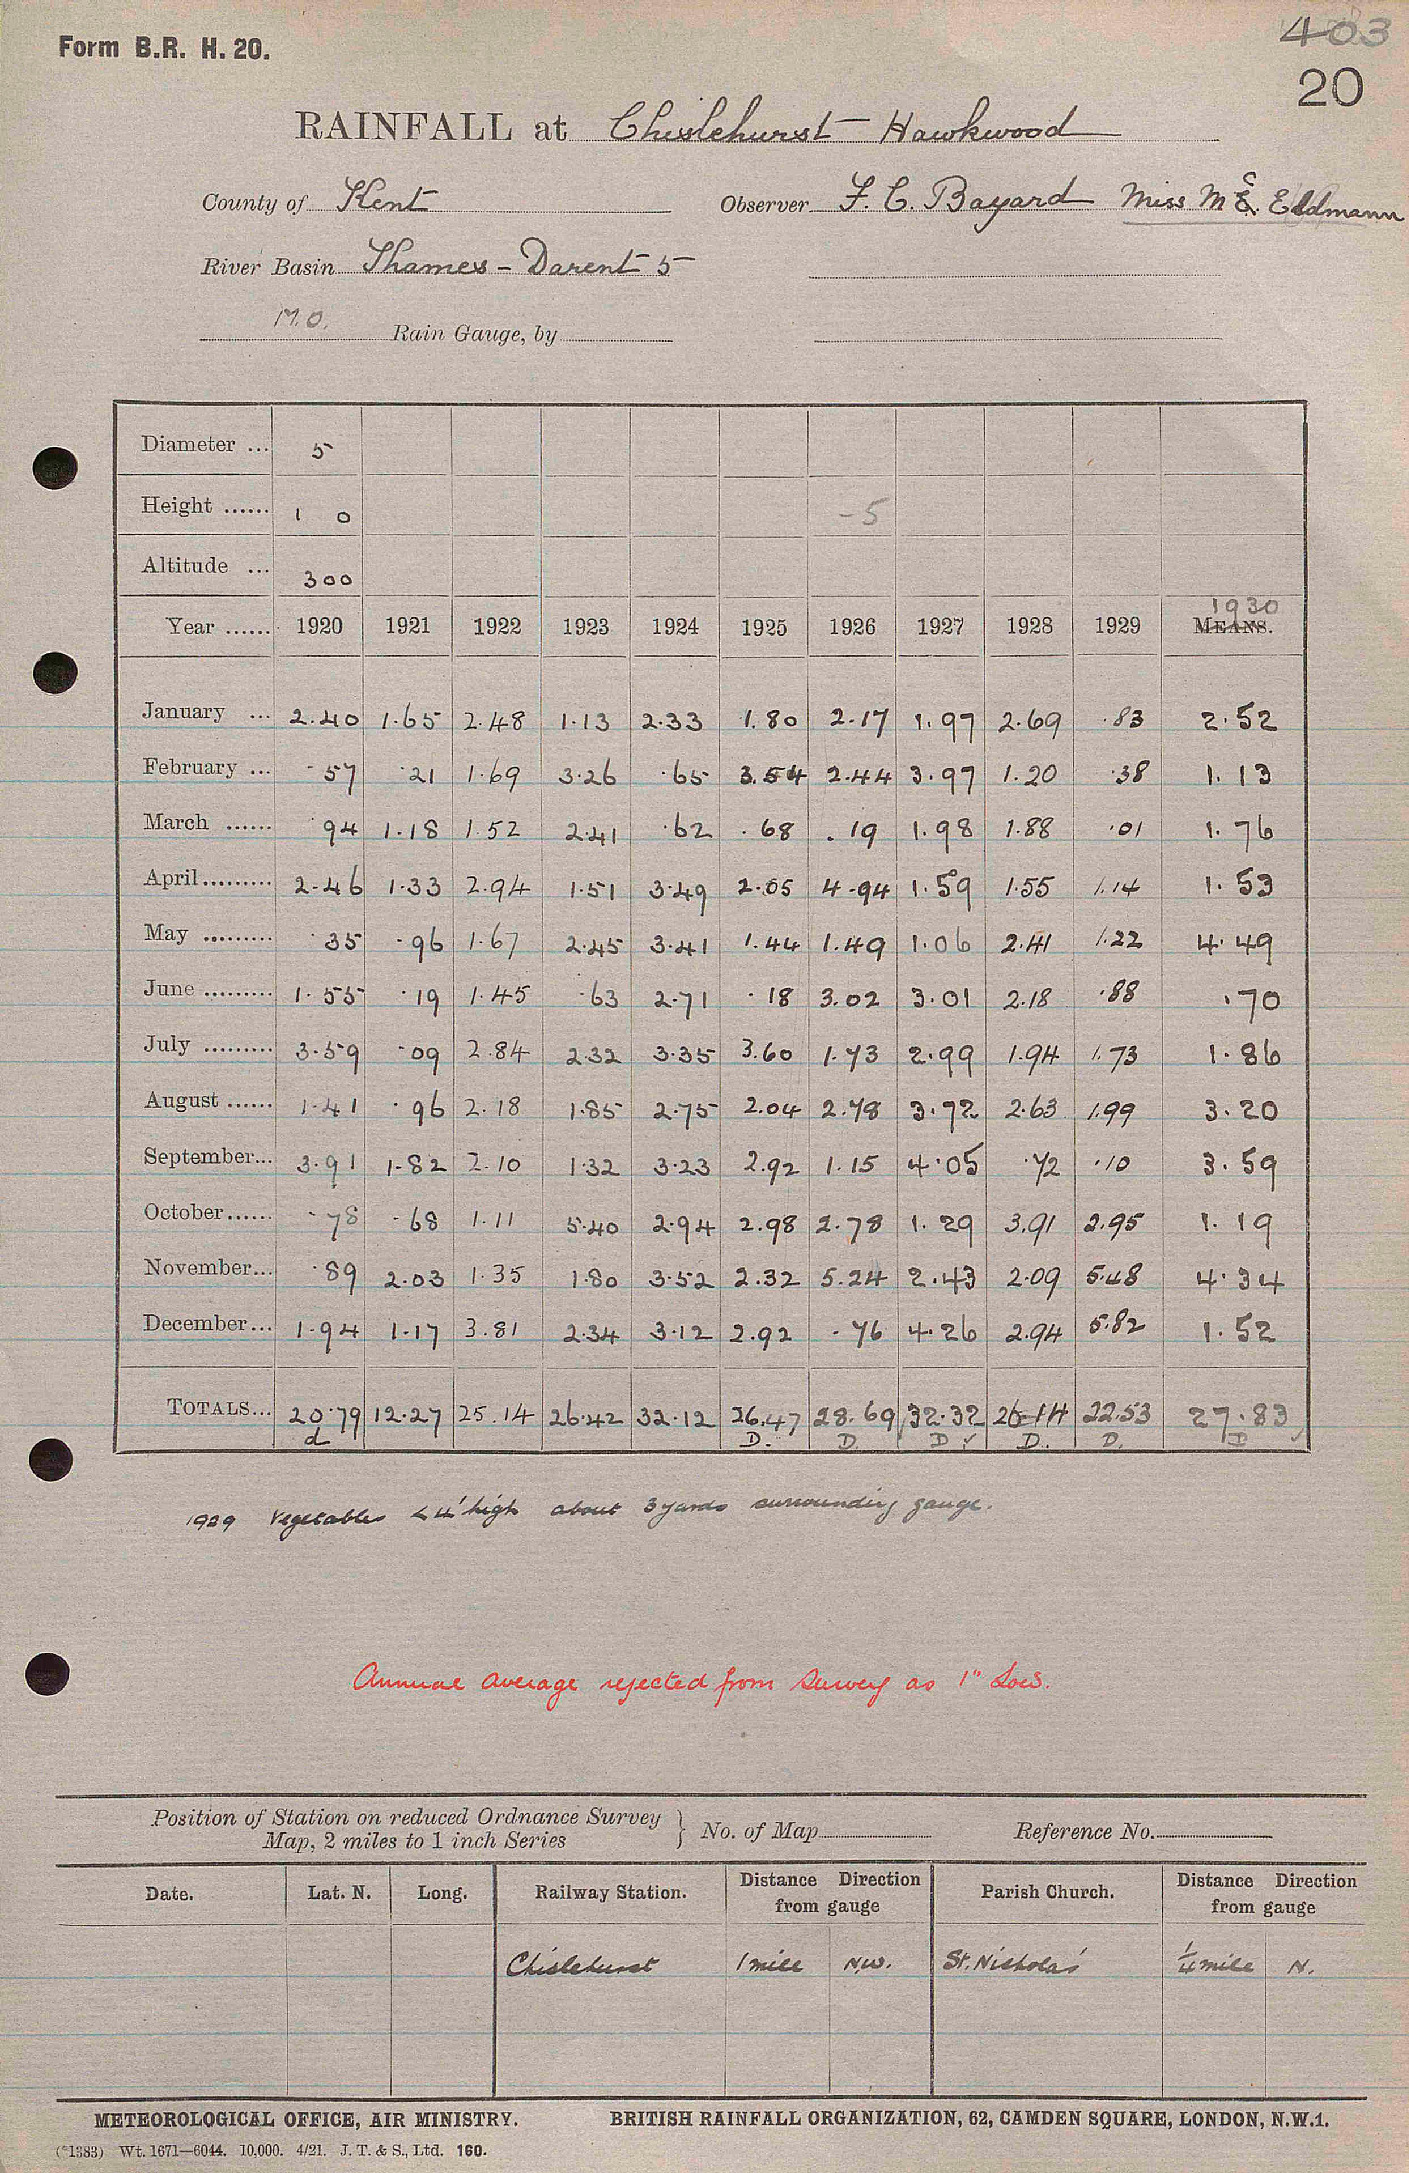 403
Form B.R. H. 20.
20
RAINFALL at Chislehurst - Hawkwood
County of Kent Observer F. C. Bayard Miss M E. Edlmann
River Basin Thames - Darent 5
M.O. Rain Gauge, by
Diameter ... 5
Height ...... 1 0 -5
Altitude ... 300
1930
Year ...... 1920 1921 1922 1923 1924 1925 1926 1927 1928 1929 MEANS.
January ... 2.40 1.65 2.48 1.13 2.33 1.80 2.17 1.97 2.69 .83 2.52
February ... .57 .21 1.69 3.26 .65 3.54 2.44 3.97 1.20 .38 1.13
March ...... .94 1.18 1.52 2.41 .62 .68 .19 1.98 1.88 .01 1.76
April ......... 2.46 1.33 2.94 1.51 3.49 2.05 4.94 1.59 1.55 1.14 1.53
May ......... .35 .96 1.67 2.45 3.41 1.44 1.49 1.06 2.41 1.22 4.49
June ......... 1.55 .19 1.45 .63 2.71 .18 3.02 3.01 2.18 .88 .70
July ......... 3.59 .09 2.84 2.32 3.35 3.60 1.73 2.99 1.94 1.73 1.86
August ...... 1.41 .96 2.18 1.85 2.75 2.04 2.78 3.72 2.63 1.99 3.20
September... 3.91 1.82 2.10 1.32 3.23 2.92 1.15 4.05 .72 .10 3.59
October...... .78 .68 1.11 5.40 2.94 2.98 2.78 1.29 3.91 2.95 1.19
November... .89 2.03 1.35 1.80 3.52 2.32 5.24 2.43 2.09 5.48 4.34
December... 1.94 1.17 3.81 2.34 3.12 2.92 .76 4.26 2.94 5.82 1.52
TOTALS... 20.79 12.27 25.14 26.42 32.12 26.47 28.69 32.32 26.14 22.53 27.83
d D. D D ✓ D. D. D ✓
1929 Vegetables < 4' high about 3 yards surrounding gauge.
Annual average rejected from Survey as 1" Low.
Position of Station on reduced Ordnance Survey
Map, 2 miles to 1 inch Series } No. of Map Reference No.
Date. Lat. N. Long. Railway Station. Distance Direction from gauge Parish Church. Distance Direction from gauge
Chislehurst 1 mile N.W. St. Nicholas' 1/4 mile N.
METEOROLOGICAL OFFICE, AIR MINISTRY. BRITISH RAINFALL ORGANIZATION, 62, CAMDEN SQUARE, LONDON, N.W.1.
(*1383) Wt. 1671—6044. 10,000. 4/21. J. T. & S., Ltd. 160.